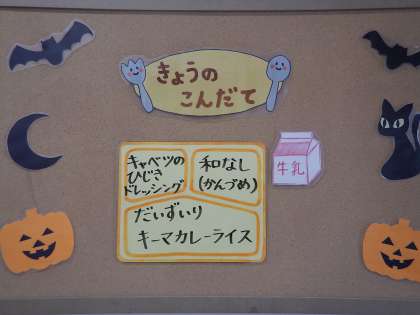 きょうの
こんだて
キャベツの
ひじき
ドレッシング
和なし
(かんづめ)
牛乳
だいずいり
キーマカレーライス